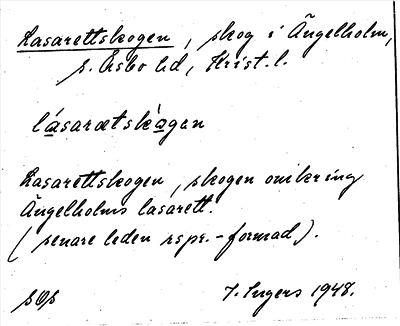 Lasarettskogen, skog i Ängelholm,
s. Åsbo hd, Krist. l.
låsarætskɷgen
Lasarettskogen, skogen omkring
Ängelholms lasarett.
(senare leden rspr.-formad).
7. Ingers 1948.